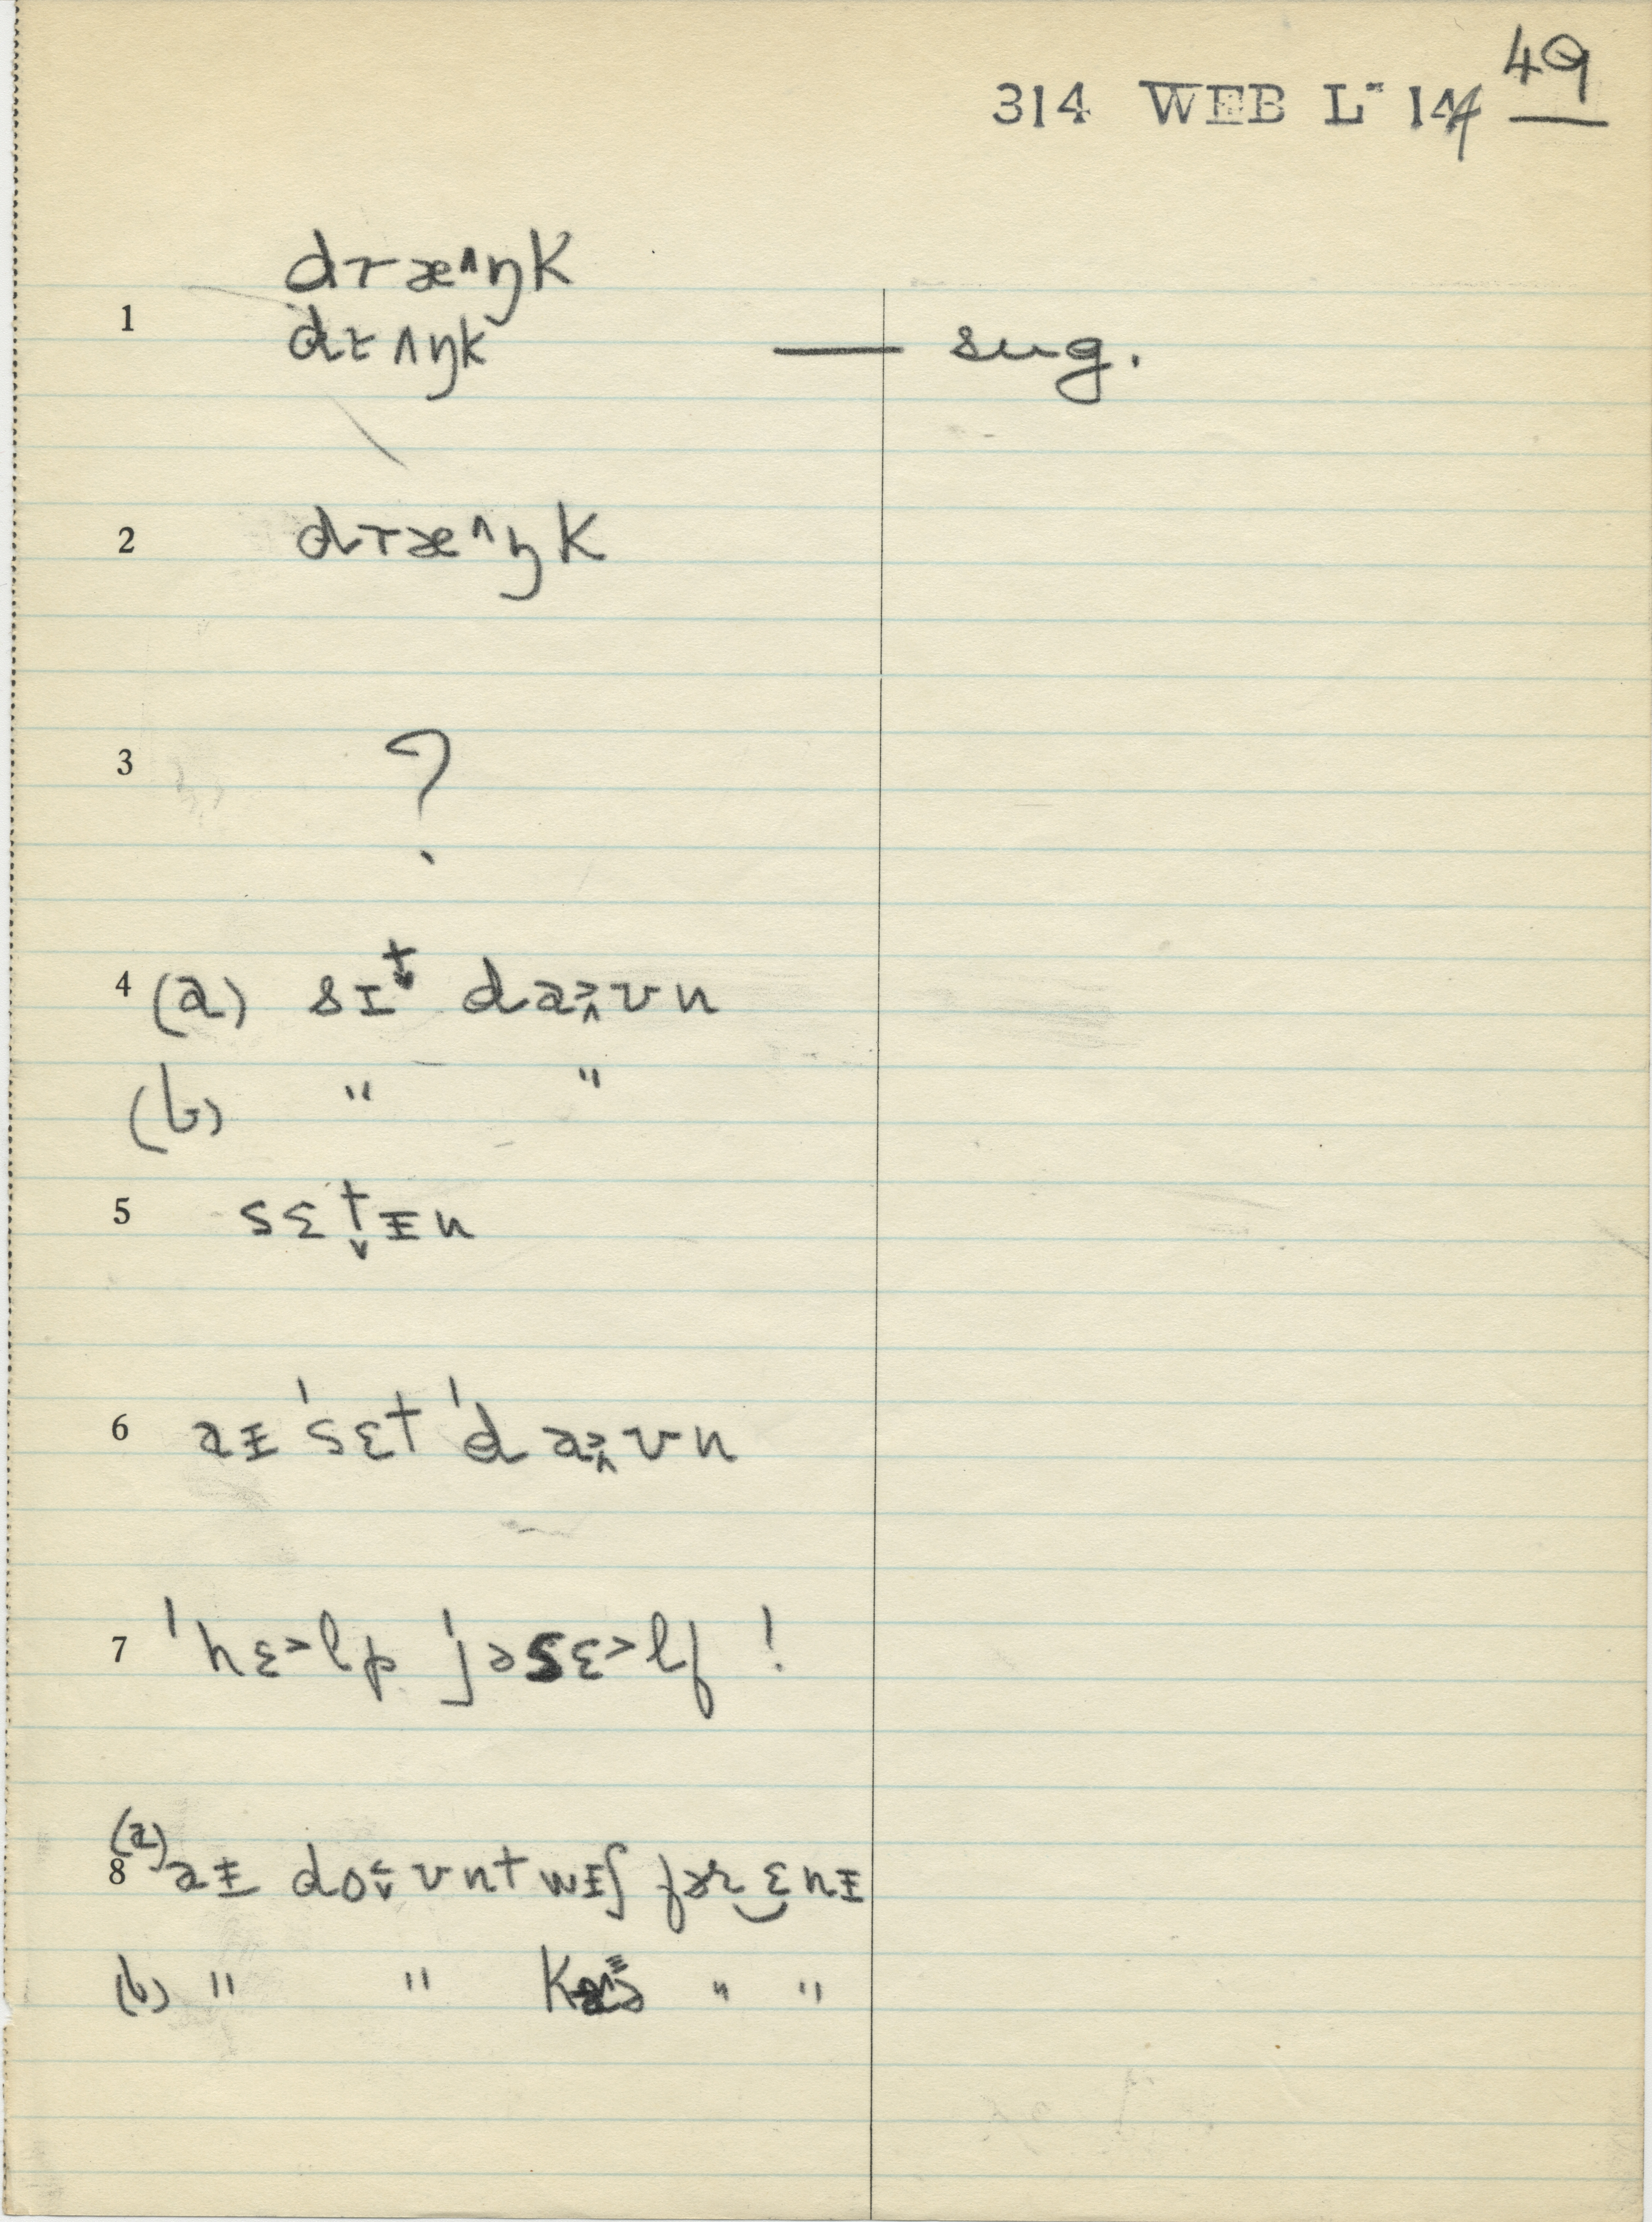 49
314 WEB L- 144
dræ^ŋk
1 drʌŋk — sug.
2 dræ^ŋk
3 ?
4 (a) sɪt̬ da>^ʊn
(b) " "
5 sɛt̬ɪn
6 aɪ 'sɛt 'da>^ʊn
7 'hɛ>lp 'jəsɛ>lf !
(a)
8 aɪ do<ˇʊnt wɪʃ fər‿ɛnɪ
(b) " " " "